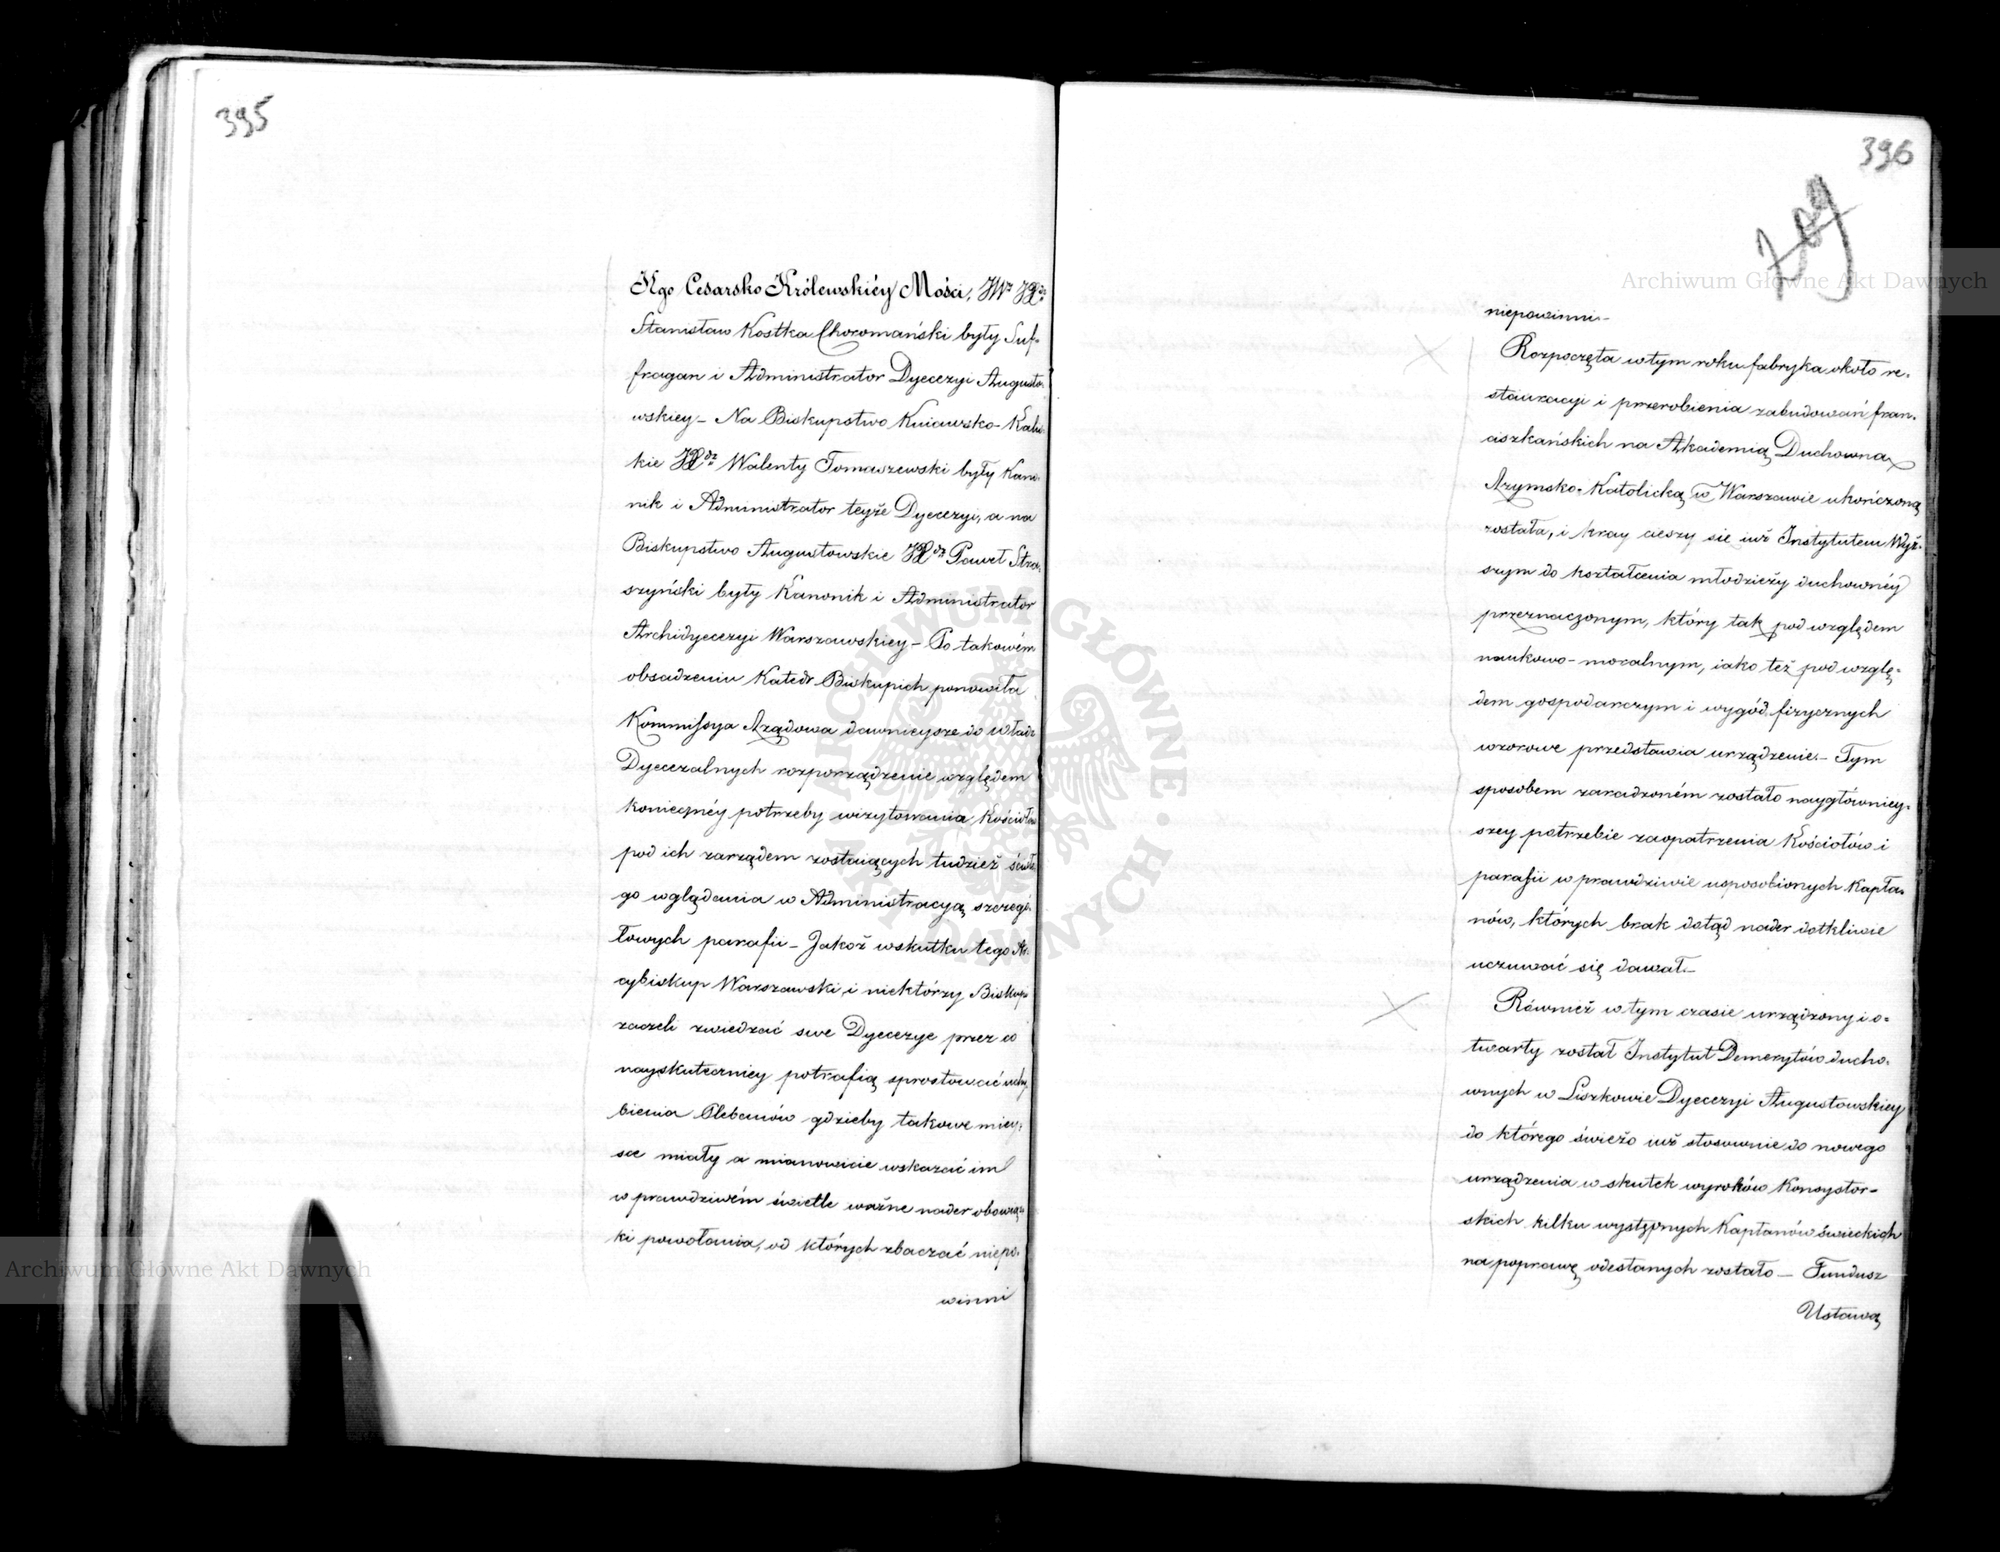 395
Jego Cesarsko Królewskiéy Mości, JW JX
Stanisław Kostka Choromański były Suf-
fragan i Administrator Dyecezyi Augusto-
wskiey – Na Biskupstwo Kuiawsko-Kali-
kie JXdz Walenty Tomaszewski były Kano-
nik i Administrator teyże Dyecezyi, a na
Biskupstwo Augustowskie JXdz Paweł Stra-
szyński były Kanonik i Administrator
Archidyecezyi Warszawskiey – Po takowém
obsadzeniu Katedr Biskupich ponowiła
Kommissya Rządowa dawnieysze do Władz
Dyecezalnych rozporządzenie względem
koniecznéy potrzeby wizytowania Kościołów
pod ich zarządem zostaiących tudzież ścisłe-
go wglądania w Administracyą szczegó-
łowych parafii – Jakoż wskutku tego Ar-
cybiskup Warszawski, i niektórzy Biskupi
zaczeli zwiedzać swe Dyecezye przez co
nayskuteczniey potrafią sprostować uchy-
bienia Plebanów gdzieby takowe miey-
sce miały a mianowicie wskazać im
w prawdziwém świetle ważne nader obowiąz-
ki powołania, od których zbaczać niepo-
winni
396
209
niepowinni –
Rozpoczęta w tym roku fabryka około re-
stauracyi i przerobienia zabudowań fran-
ciszkańskich na Akademią Duchowną
Rzymsko-Katolicką w Warszawie ukończoną
została, i kray cieszy się iuż Instytutem Wyż-
szym do kształcenia młodzieży duchownéy
przeznaczonym, który tak pod względem
naukowo-moralnym, iako też pod wzglę-
dem gospodarczym i wygód fizycznych
wzorowe przedstawia urządzenie. – Tym
sposobem zaradzoném zostało naygłówniey-
szey potrzebie zaopatrzenia Kościołów i
parafii w prawdziwie usposobionych Kapła-
nów, których brak dotąd nader dotkliwie
uczuwać się dawał. –
Również w tym czasie urządzony i o-
twarty został Instytut Demerytów ducho-
wnych w Liszkowie Dyecezyi Augustowskiey
do którego świeżo iuż stosownie do nowego
urządzenia w skutek wyroków Konsystor-
skich kilku występnych Kapłanów świeckich
na poprawę odesłanych zostało – Fundusz
Ustawą
Archiwum Główne Akt Dawnych
Archiwum Główne Akt Dawnych
ARCHIWUM GŁÓWNE AKT DAWNYCH